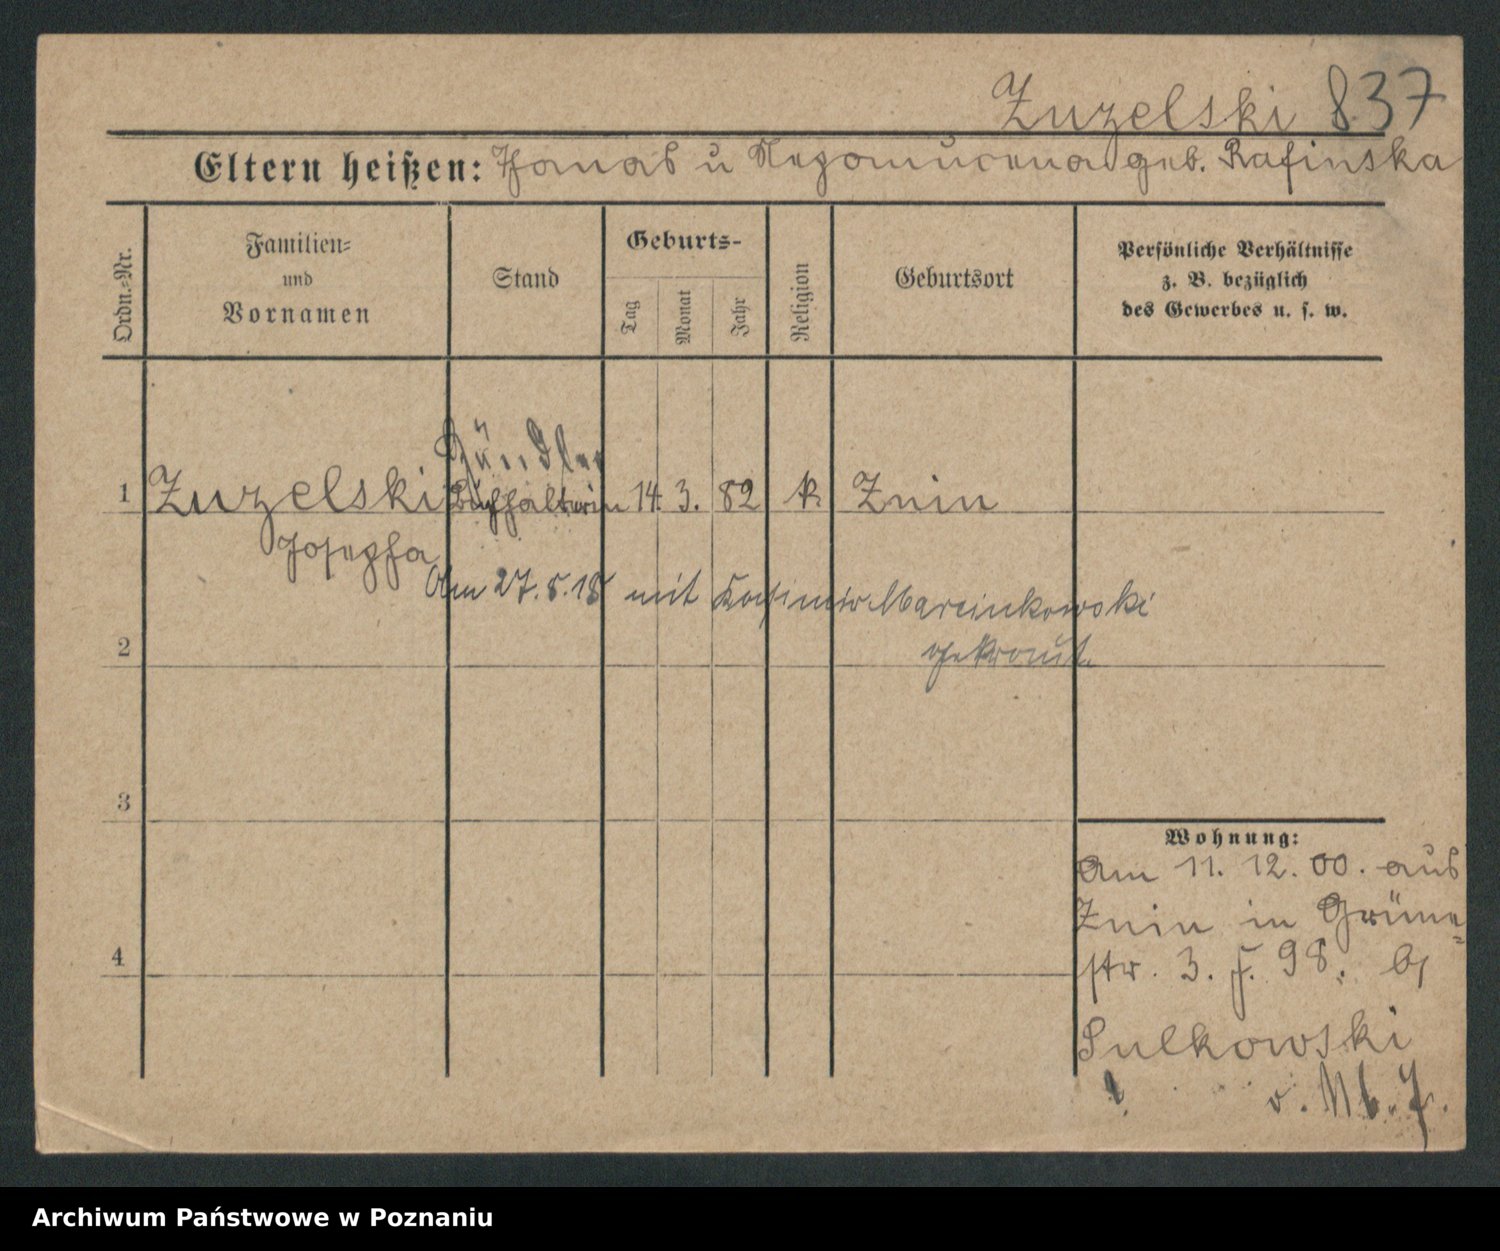 Zuzelski 837
Eltern heißen: Thomas u Nepomucena geb. Rafinska
Ordn.=Nr.
Familien=
und
Vornamen
Stand
Geburts-
Tag
Monat
Jahr
Religion
Geburtsort
Persönliche Verhältnisse
z. B. bezüglich
des Gewerbes u. s. w.
Händler
1 Zuzelski Buchhalterin 14. 3. 82 k. Znin
Josepha
Am 27.5.18 mit Kasimir Marcinkowski
getraut.
2
3
4
Wohnung:
Am 11. 12. 00. aus
Znin in Grüne=
str. 3. F. 98. b/
Sulkowski
v.
Archiwum Państwowe w Poznaniu